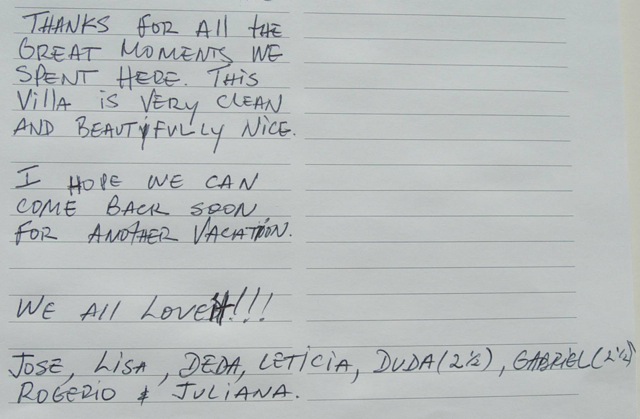 THANKS FOR All tHE
GREAT MOMENTS WE
SPENT HERE. THIS
VillA iS VERY CLEAN
AND BEAUTYFULLY NICE.
I HOPE WE CAN
COME BACK SOON
FOR ANOTHER VACATION.
WE All LOVE it!!!
JOSE, LiSA, DEDA, LETICIA, DUDA (2½), GABRIEL (2½)
ROGERIO & JULIANA.